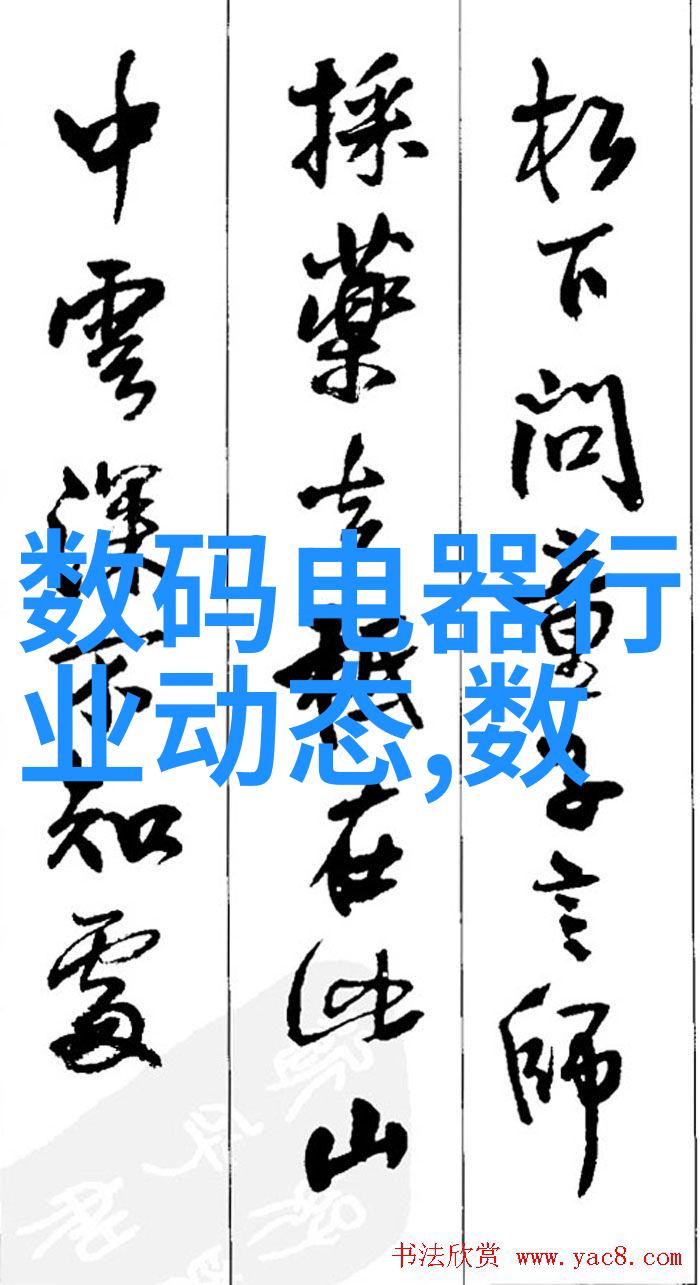 松下問童子言師
採藥去祗在此山
中雲深不知處
数码电器行
业动态,数
书法欣赏 www.yac8.com